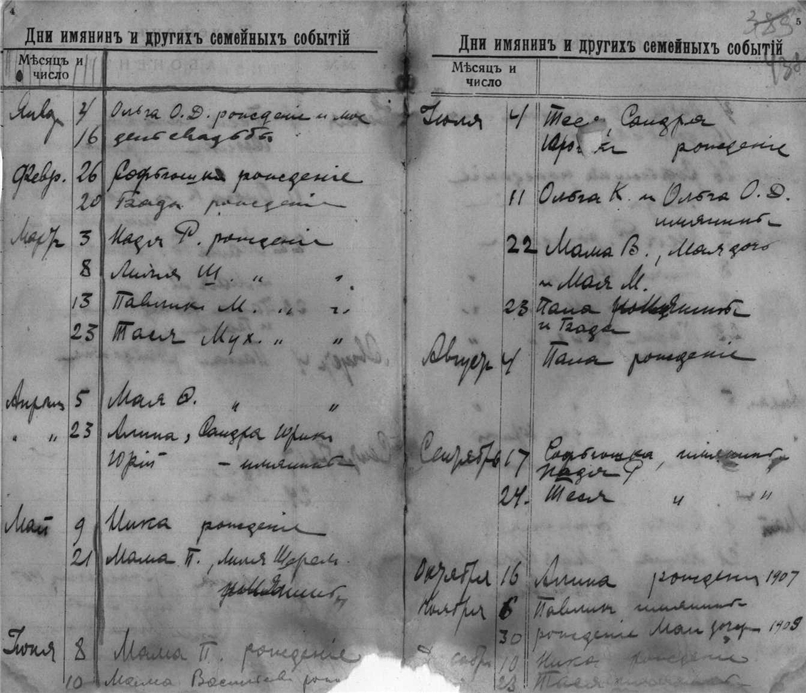 4
Дни имянинъ и другихъ семейныхъ событій
Мѣсяцъ и число
Январ 4 Ольга О.Д. рождение и мое
16 день свадьбы
Февр. 26 Софьюшки рожденіе
20 Влади рожденіе
Март 3 Надя Р. рожденіе
8 Лилия Щ. " "
13 Павлик М. " "
23 Тася Мух. " "
Апрель 5 Мая " "
" " 23 Алина, Сандра Юрик
Юрій – имянины
Май 9 Ника рожденіе
21 Мама П., Лиля
имянины
Июня 8 Мама П. рожденіе
10 Мама
5
385
438
Дни имянинъ и другихъ семейныхъ событій
Мѣсяцъ и число
Июля 4 Тася, Сандра
рожденіе
11 Ольга К. и Ольга О.Д.
имянины
22 Мама В., Мая
и Мая М.
23 Папа имянины
и Влади
Август 4 Папа рожденіе
Сентябрь 17 Софьюшка, имянины
Надя Р
24. Тася " "
Октября 16 Алина рождения 1907
Ноября 6 Павлик имянины
30 рожденіе Маи 1909
10 Ника рожденіе
23 Тася имянины